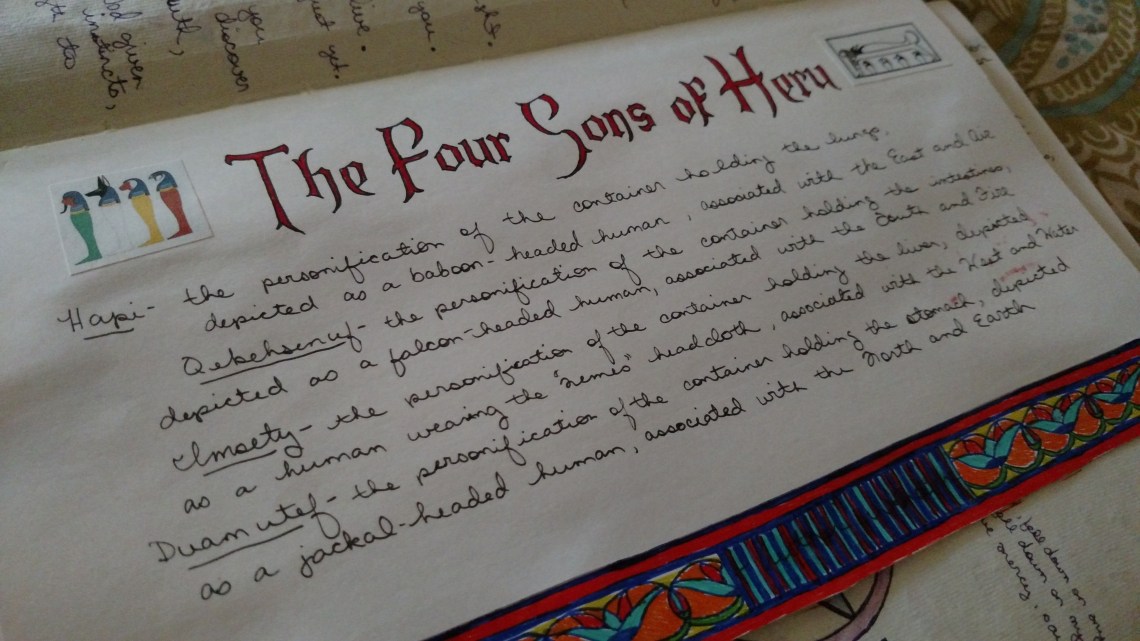 ght.
you.
live.
just yet.
you
discover
instincts,
to
The Four Sons of Heru
Hapi- the personification of the container holding the lungs,
depicted as a baboon-headed human, associated with the East and Air
Qebehsenuf- the personification of the container holding the intestines,
depicted as a falcon-headed human, associated with the South and Fire
Imsety- the personification of the container holding the liver, depicted
as a human wearing the "nemes" headcloth, associated with the West and Water
Duamutef- the personification of the container holding the stomach, depicted
as a jackal-headed human, associated with the North and Earth
fall down on
fall down on my
mercy,